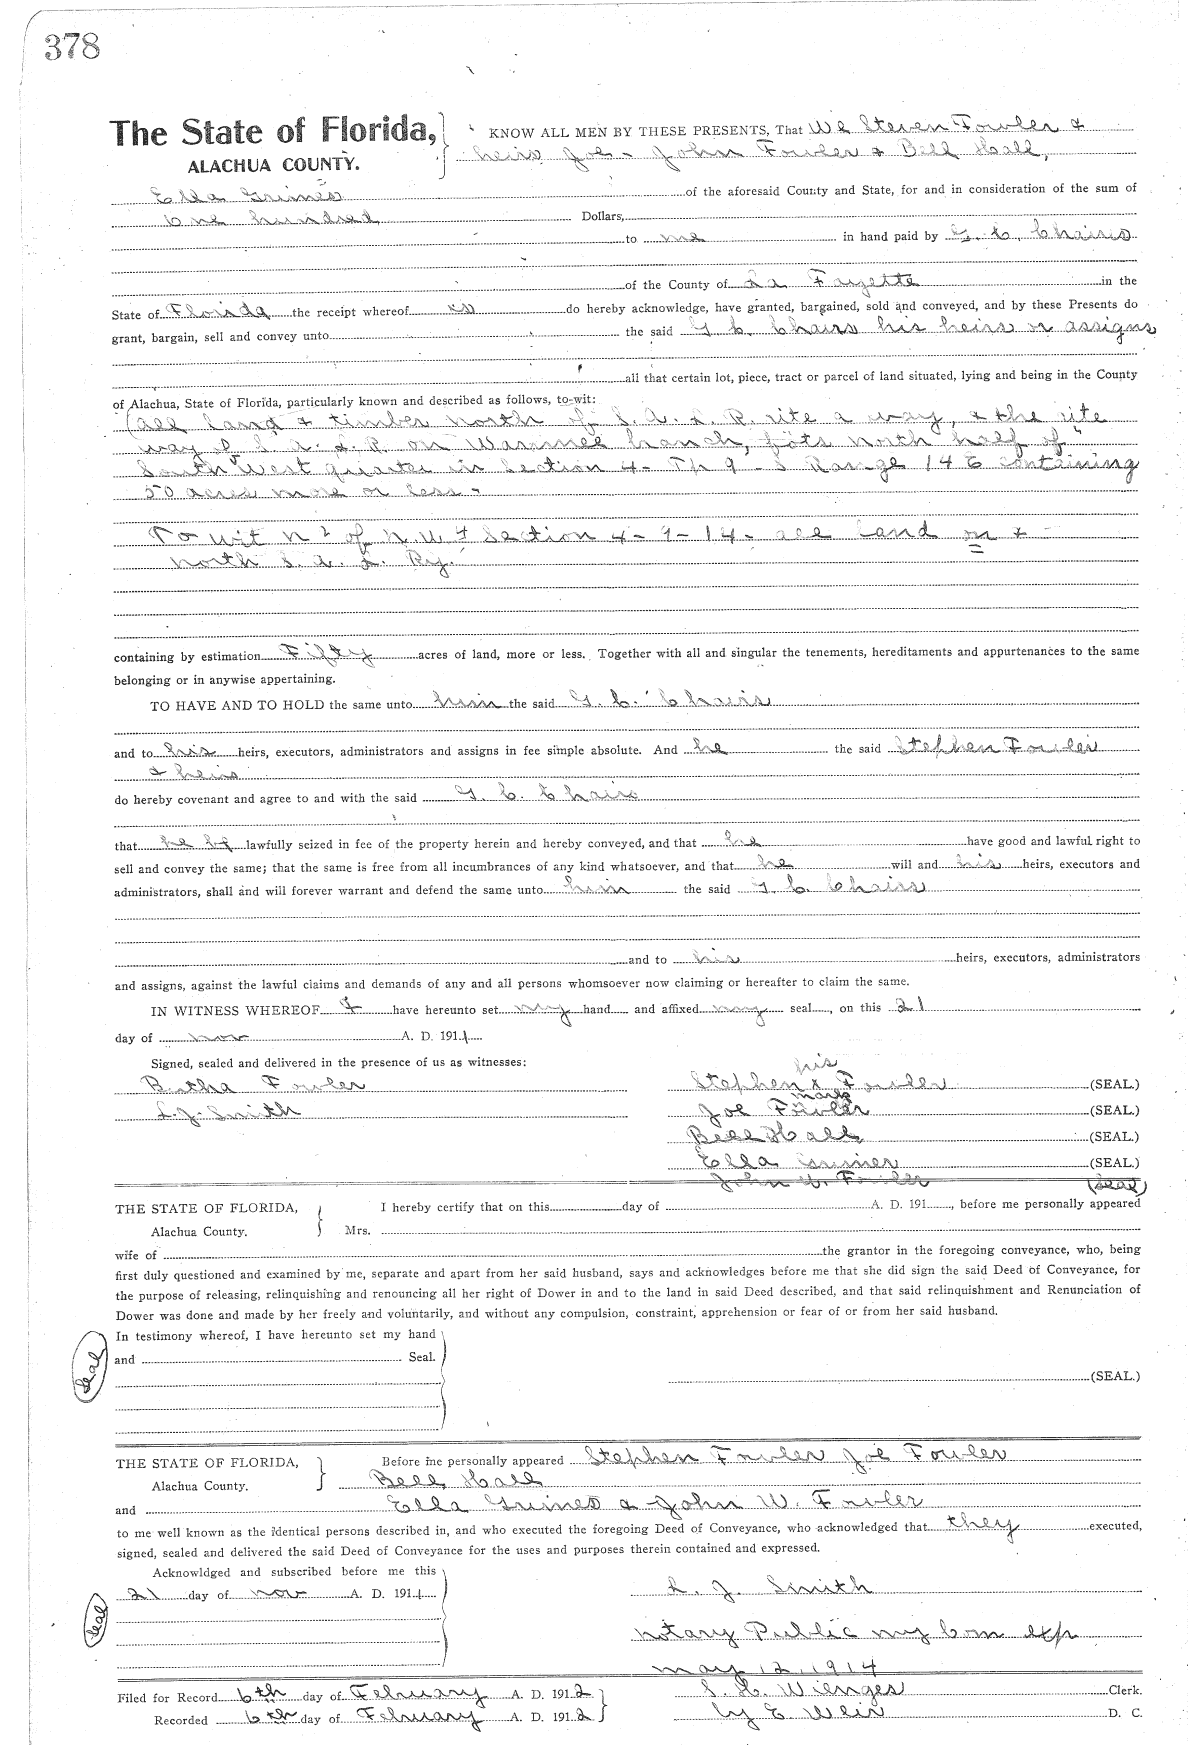 378
The State of Florida, KNOW ALL MEN BY THESE PRESENTS, That We Steven Fowler &
ALACHUA COUNTY. heirs Joe - John Fowler & Bell Hall,
Ella Grimes of the aforesaid County and State, for and in consideration of the sum of
One hundred Dollars,
to me in hand paid by G. C. Chairs
of the County of La Fayette in the
State of Florida the receipt whereof is do hereby acknowledge, have granted, bargained, sold and conveyed, and by these Presents do
grant, bargain, sell and convey unto the said G. C. Chairs his heirs or assigns
all that certain lot, piece, tract or parcel of land situated, lying and being in the County
of Alachua, State of Florida, particularly known and described as follows, to-wit:
(all land & timber north of S. A. L. R. rite a way, & the rite
way of S. A. L. R. on Wannee branch, north half of
South West quarter in Section 4- Tp 9 - S Range 14 E containing
50 acres more or less -
To wit n 2 of n.w 4 Section 4 - 9 - 14 - all land on &
north S. A. L. Ry.
containing by estimation Fifty acres of land, more or less. Together with all and singular the tenements, hereditaments and appurtenances to the same
belonging or in anywise appertaining.
TO HAVE AND TO HOLD the same unto him the said G. C. Chairs
and to his heirs, executors, administrators and assigns in fee simple absolute. And he the said Stephen Fowler
& heirs
do hereby covenant and agree to and with the said G. C. Chairs
that he lawfully seized in fee of the property herein and hereby conveyed, and that he have good and lawful right to
sell and convey the same; that the same is free from all incumbrances of any kind whatsoever, and that he will and his heirs, executors and
administrators, shall and will forever warrant and defend the same unto him the said G. C. Chairs
and to his heirs, executors, administrators
and assigns, against the lawful claims and demands of any and all persons whomsoever now claiming or hereafter to claim the same.
IN WITNESS WHEREOF I have hereunto set my hand and affixed my seal, on this 21
day of nov A. D. 1911
Signed, sealed and delivered in the presence of us as witnesses: his
Bertha Fowler Stephen x Fowler (SEAL.)
mark
L. J. Smith Joe Fowler (SEAL.)
Bell Hall (SEAL.)
Ella Grimes (SEAL.)
John W. Fowler (Seal)
THE STATE OF FLORIDA, I hereby certify that on this day of A. D. 191, before me personally appeared
Alachua County. Mrs.
wife of the grantor in the foregoing conveyance, who, being
first duly questioned and examined by me, separate and apart from her said husband, says and acknowledges before me that she did sign the said Deed of Conveyance, for
the purpose of releasing, relinquishing and renouncing all her right of Dower in and to the land in said Deed described, and that said relinquishment and Renunciation of
Dower was done and made by her freely and voluntarily, and without any compulsion, constraint, apprehension or fear of or from her said husband.
In testimony whereof, I have hereunto set my hand
Seal and Seal.
(SEAL.)
THE STATE OF FLORIDA, Before me personally appeared Stephen Fowler Joe Fowler
Alachua County. Bell Hall
and Ella Grimes & John W. Fowler
to me well known as the identical persons described in, and who executed the foregoing Deed of Conveyance, who acknowledged that they executed,
signed, sealed and delivered the said Deed of Conveyance for the uses and purposes therein contained and expressed.
Acknowldged and subscribed before me this
21 day of nov A. D. 1911 L. J. Smith
Seal
notary Public my Com exp
may 12, 1914
Filed for Record 6th day of February A. D. 1912 S. H. Wienges Clerk.
Recorded 6th day of February A. D. 1912 by E Weir D. C.